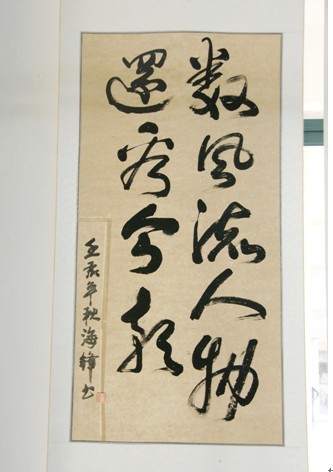 数風流人物
還看今朝
壬辰年秋海锋书